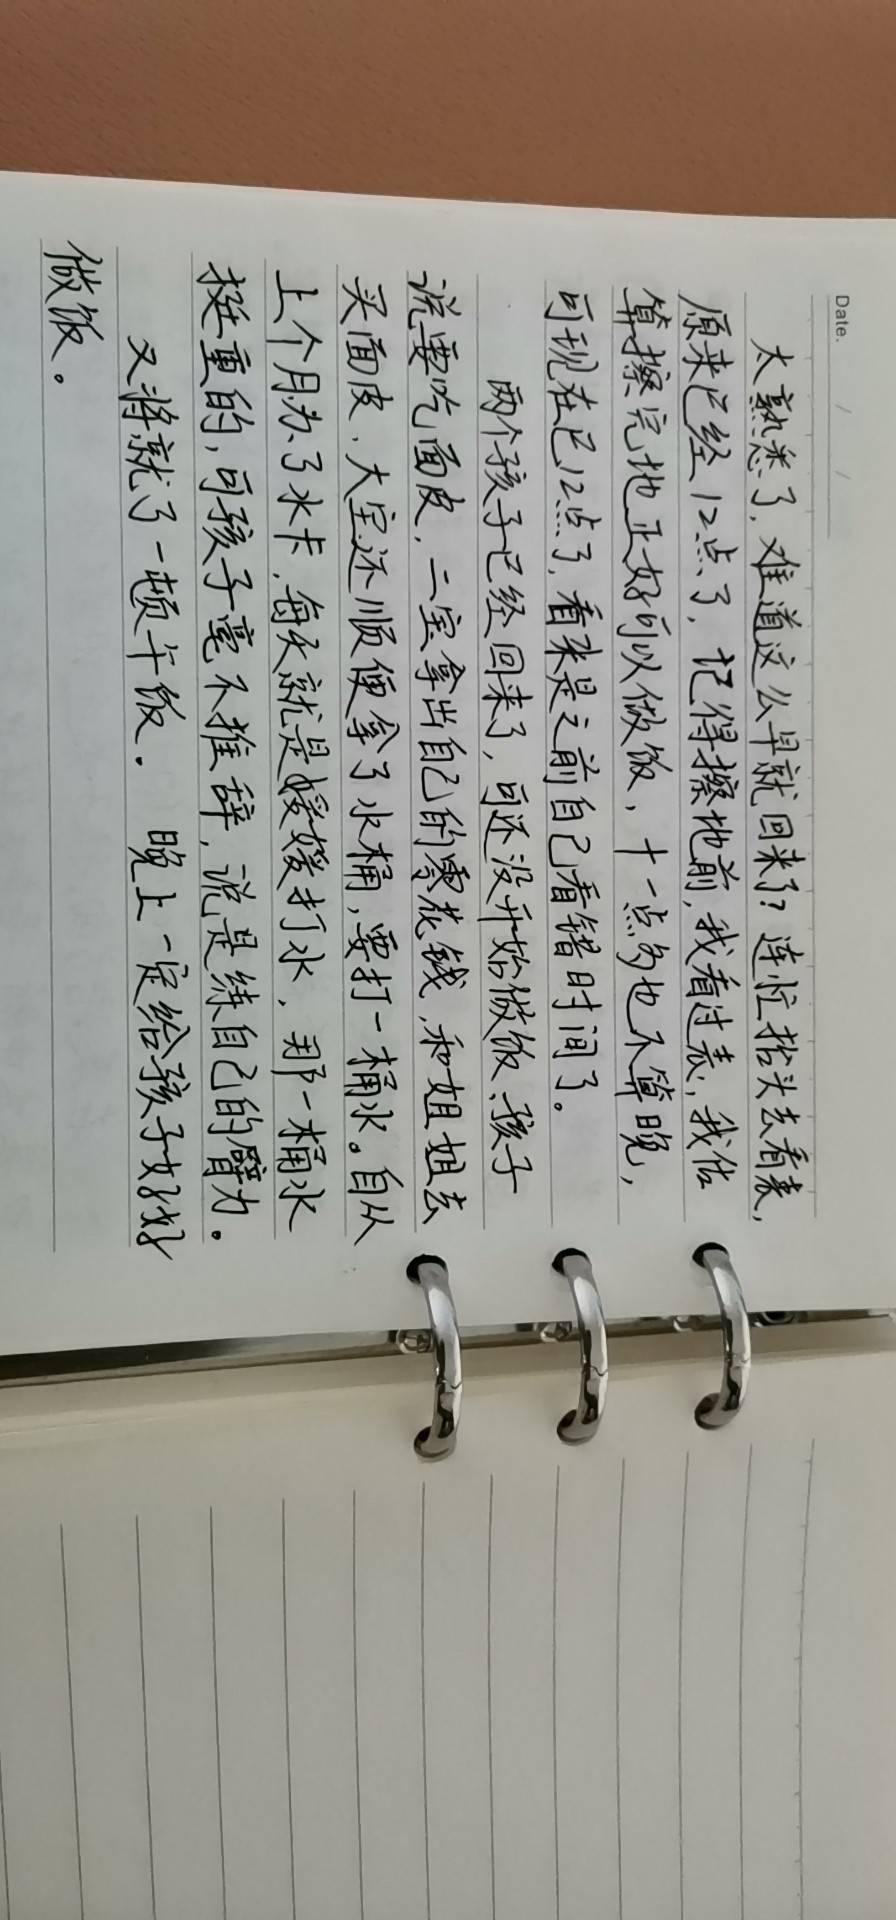 Date. / /
太熟悉了，难道这么早就回来了？连忙抬头去看表，
原来已经12点了，记得擦地前，我看过表，我估
算擦完地正好可以做饭，十一点多也不算晚，
可现在已12点了，看来是之前自己看错时间了。
两个孩子已经回来了，可还没开始做饭、孩子
说要吃面皮，二宝拿出自己的零花钱，和姐姐去
买面皮，大宝还顺便拿了水桶，要打一桶水。自从
上个月办了水卡，每天就是媛媛打水，那一桶水
挺重的，可孩子毫不推辞，说是练自己的臂力。
又将就了一顿午饭。晚上一定给孩子好好
做饭。